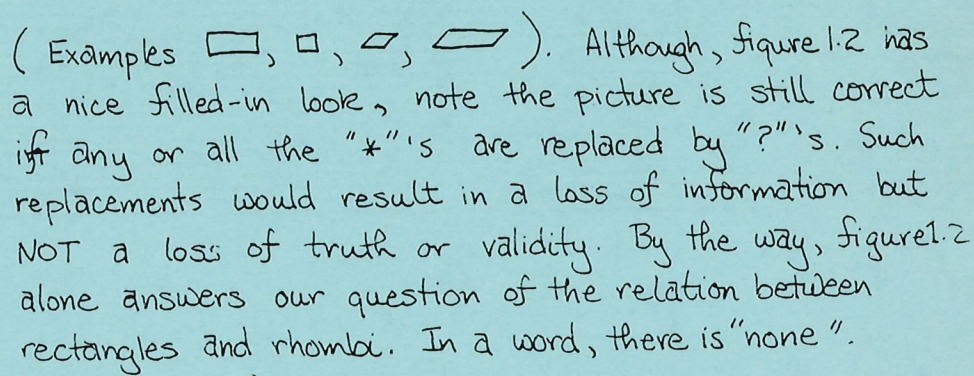 ( Examples ▭, □, ▱, ▱ ). Although, figure 1.2 has
a nice filled-in look, note the picture is still correct
if any or all the "*"'s are replaced by "?"'s. Such
replacements would result in a loss of information but
NOT a loss of truth or validity. By the way, figure1.2
alone answers our question of the relation between
rectangles and rhombi. In a word, there is "none".